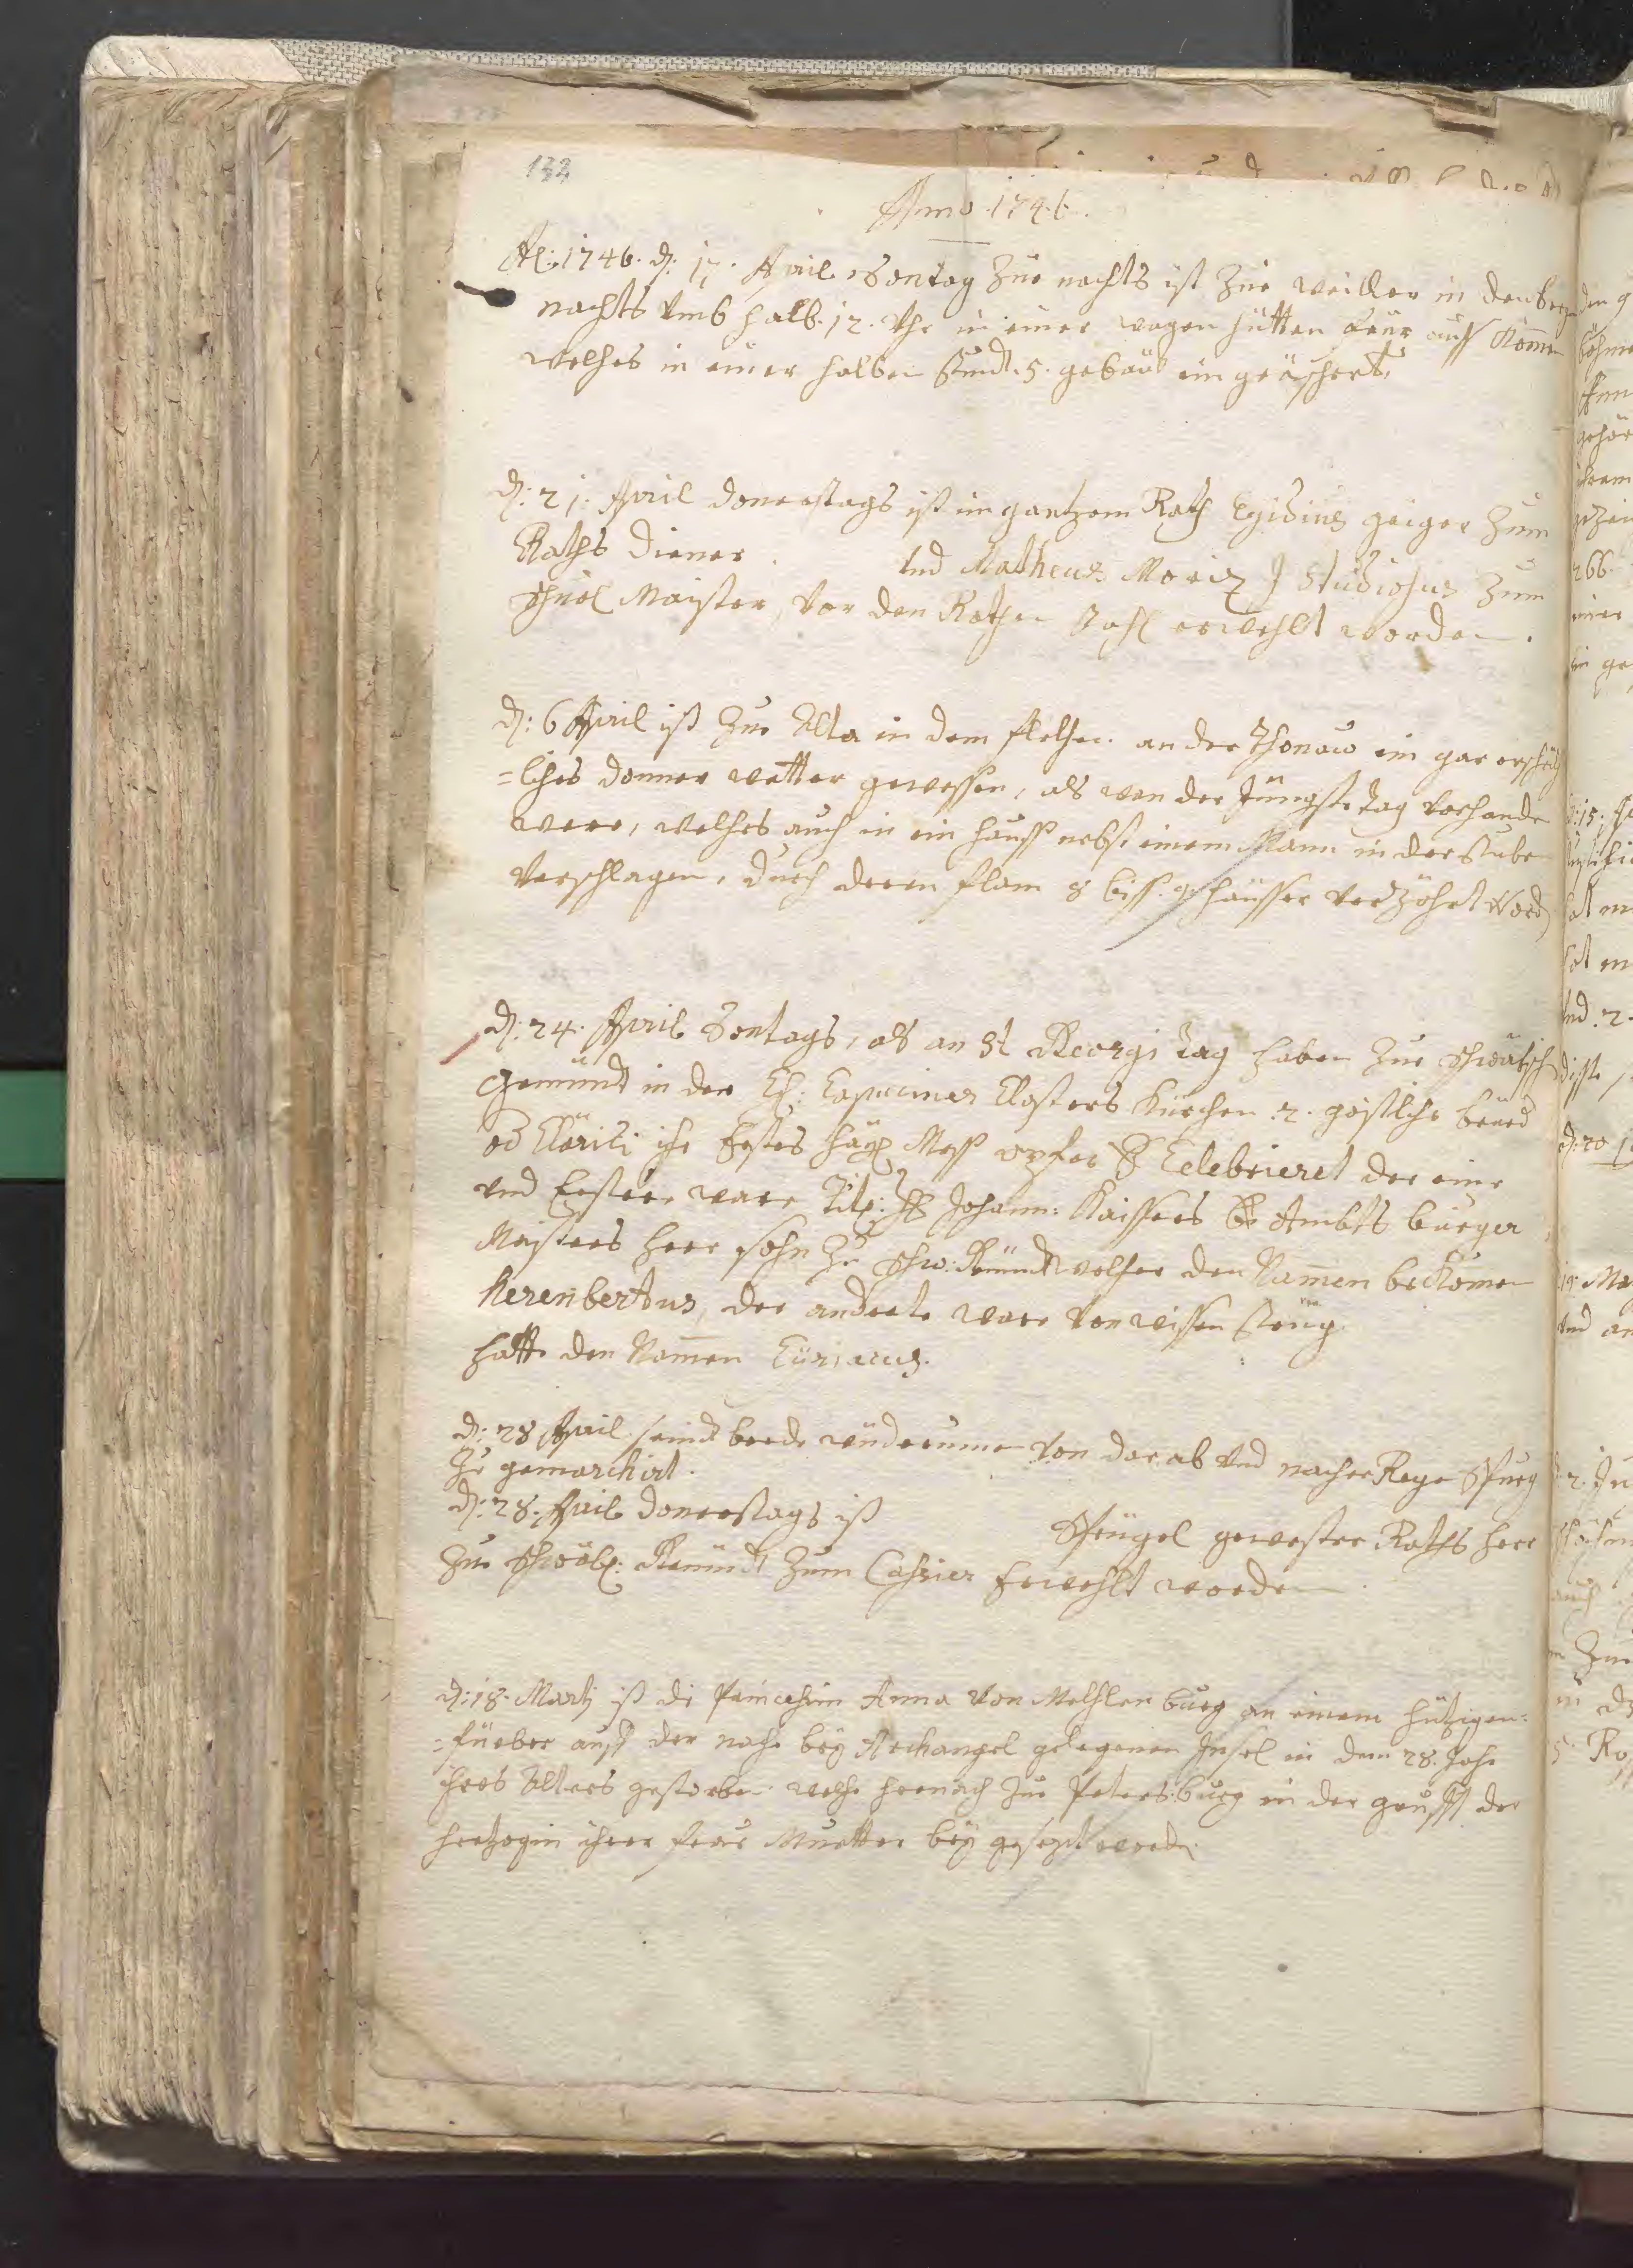 132
Anno 1746.
Ao: 1746. d: 17. April Sontag Zue nachts ist Zue Weiller in den bergen
nachts Vmb halb. 12. Vhr in einer wagen hütten feür auss Komen
welches in einer halben stundt. 5. gebäu eingeäschert.
d: 21. April donerstags ist im gantzem Rath Egidius geiger Zum
Raths diener. Vnd Matheus Moriz J Studiosus Zum
schuel Maister, Vor den Rathen Zahl erwehlt worden.
d: 6 April ist Zue Alta in dem flethen an der Thonaw ein gar erschröck
=liches donner wetter gewessen, als wen der Jüngste tag vorhande
were, welches auch in ein hauss nebst einem Mann in der stuben
Verschlagen, durch deren flam 8 biss 9 häusser verzöhrt word
d: 24. April Sontags, als an St Georgi tag haben Zue schwäbisch
Gemündt in der Capuciner Closters Kürchen 2. geistliche
od Clärici ihr Erstes häyl Mess opfer Celebrieret der eine
vnd Erstere ware Titl: H Johann: Kaissers Ambts burger
Maisters herr sohn Zu schw: Gmündt welcher den Namen beKomen
Kerenbertus, der anderte ware Von wissensteig
hatte den Namen Ciriacus.
d: 28 April seindt beede widerumen Von dar ab Vnd nacher Rege Spurg
Zue gemarchirt.
d: 28. April donerstags ist Stüigel gewester Raths herr
Zue schwäb: Gemündt Zum Cassier Erwehlt worden
d: 18. Marti ist di Princessin Anna Von Mechlenburg an einem hützigen=
=füeber auff der nahe bey Archangel gelegenen Insel in dem 28. Jahr
ihres Alters gestorben welche hernach Zue Petersburg in der grufft der
hertzogin ihrer frau Muetter bey gesezt worden.